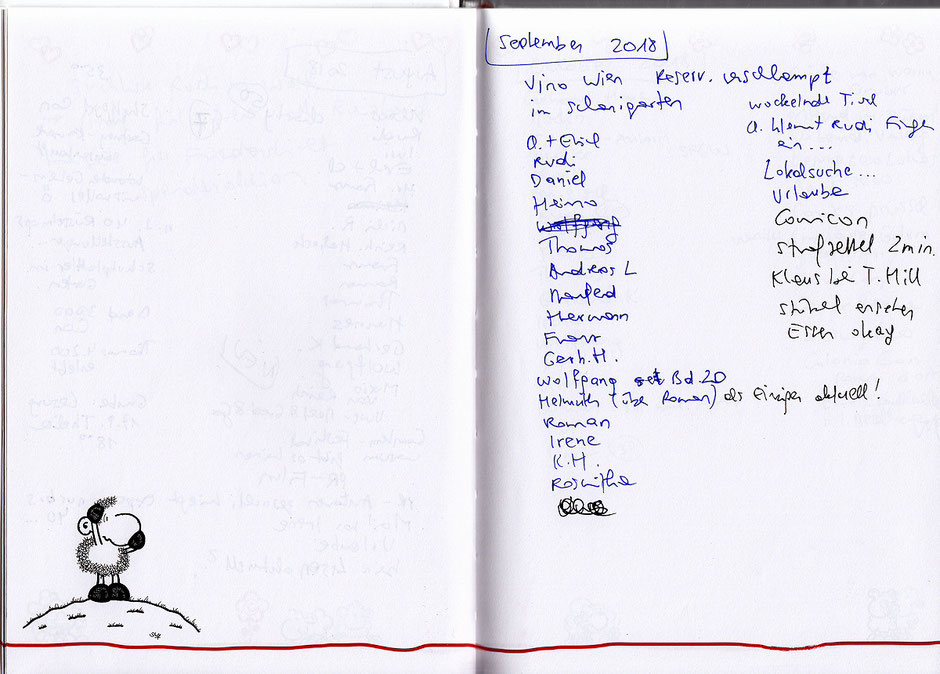 September 2018
Vino Wien Reserv. verschlampt
im Schanigarten
A. + Ethel
Rudi
Daniel
Heino
Wolfgang
Thomas
Andreas L
Manfred
Hermann
Franz
Gerh. H.
Wolfgang Bd. 20
Helmuth (über Roman) als Einziger aktuell!
Roman
Irene
K.H.
Roswitha
wackelnde Tische
A. klemmt Rudi Finger
ein...
Lokalsuche...
Urlaube
Comicon
Strafzettel 2 min.
Klaus bei T. Mill
Essen okay